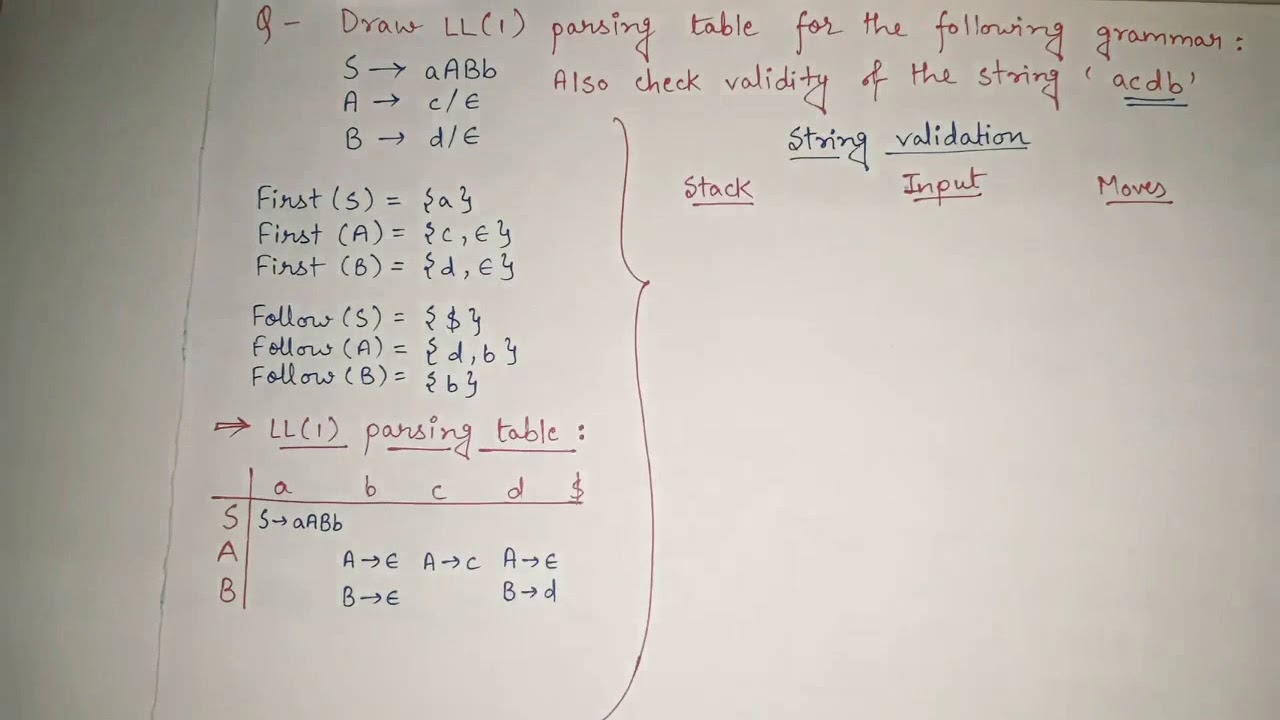 Q- Draw LL(1) parsing table for the following grammar:
S → aABb
Also check validity of the string 'acdb'
A → c/ϵ
B → d/ϵ
First (S) = {a}
First (A) = {c, ϵ}
First (B) = {d, ϵ}
Follow (S) = {$}
Follow (A) = {d, b}
Follow (B) = {b}
⇒ LL(1) parsing table:
a b c d $
S S→aABb
A A→ϵ A→c A→ϵ
B B→ϵ B→d
String validation
Stack Input Moves